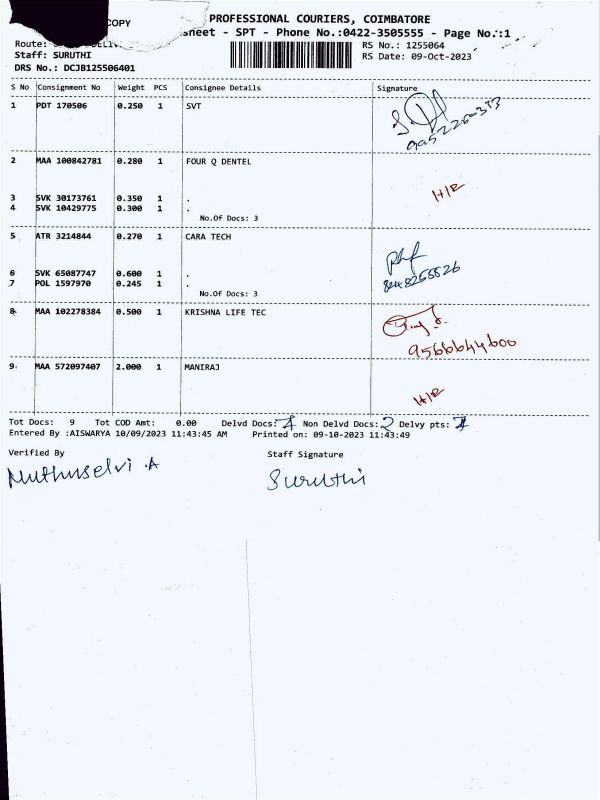 COPY
PROFESSIONAL COURIERS, COIMBATORE
sheet - SPT - Phone No.:0422-3505555 - Page No.:1
Route:
RS No.: 1255064
Staff: SURUTHI
RS Date: 09-Oct-2023
DRS No.: DCJB125506401
S No Consignment No Weight PCS Consignee Details Signature
1 PDT 170506 0.250 1 SVT
2 MAA 100842781 0.280 1 FOUR Q DENTEL
H/R
3 SVK 30173761 0.350 1 .
4 SVK 10429775 0.300 1 .
No.Of Docs: 3
5 ATR 3214844 0.270 1 CARA TECH
6 SVK 65087747 0.600 1 .
7 POL 1597970 0.245 1 .
No.Of Docs: 3
8 MAA 102278384 0.500 1 KRISHNA LIFE TEC
9566644600
9. MAA 572097407 2.000 1 MANIRAJ
H/R
Tot Docs: 9 Tot COD Amt: 0.00 Delvd Docs: 7 Non Delvd Docs: 2 Delvy pts:
Entered By :AISWARYA 10/09/2023 11:43:45 AM Printed on: 09-10-2023 11:43:49
Verified By Staff Signature
Muthuselvi .A Suruthi